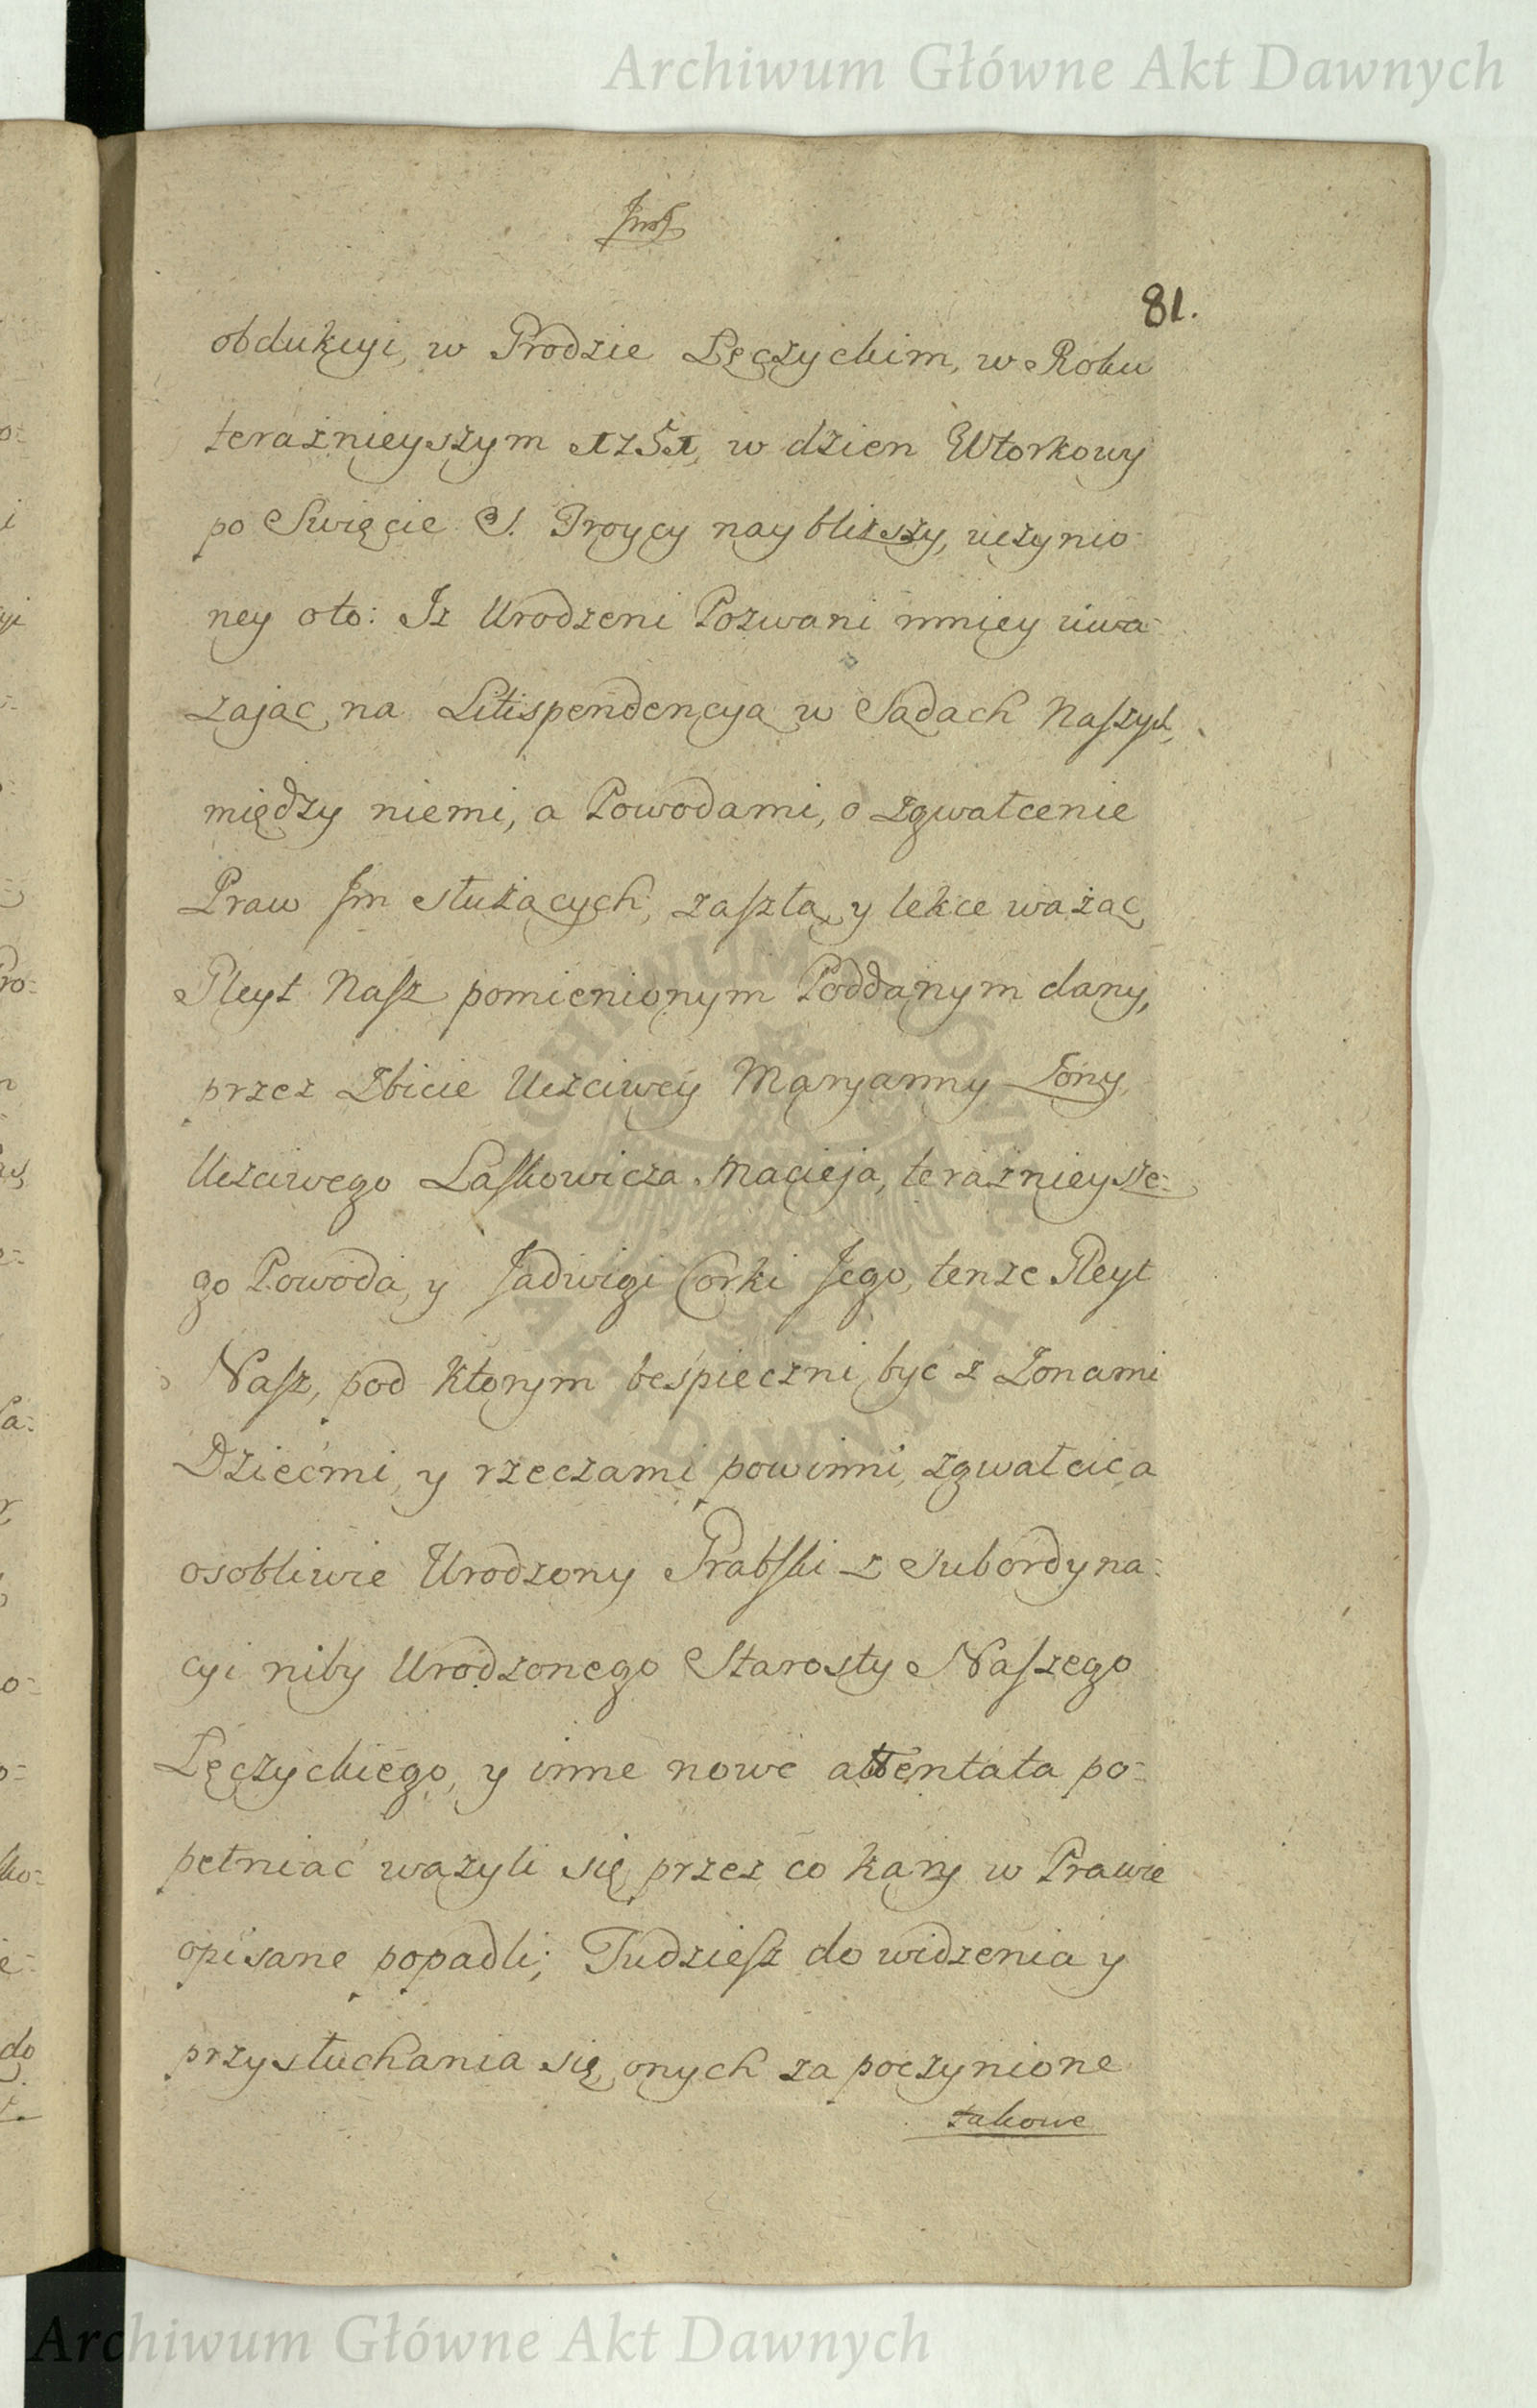 Archiwum Główne Akt Dawnych
81.
obdukcyi, w Grodzie Łęczyckim, w Roku
teraźnieyszym 1751, w dzien Wtorkowy
po Swięcie S. Troycy naybliższy, uczynio-
ney oto: Iż Urodzeni Pozwani mniey uwa-
zaiąc, na Litispendencyą w Sądach Naszych,
między niemi, a Powodami, o zgwałcenie
Praw Jm służących, zaszłą, y lekce ważąc
Gleyt Nasz pomienionym Poddanym dany,
przez Zbicie Uczciwey Maryanny Żony
Uczciwego Laskowicza Macieja, teraźnieysze-
go Powoda, y Jadwigi Corki Jego, tenże Gleyt
Nasz, pod ktorym bespieczni być z Zonami
Dziećmi, y rzeczami powinni, zgwałcić, a
osobliwie Urodzony Grabski z Subordyna-
cyi niby Urodzonego Starosty Naszego
Łęczyckiego, y inne nowe attentata po-
pełniać ważyli się, przez co kary w Prawie
opisane popadli; Tudziesz do widzenia y
przysłuchania się, onych za poczynione
takowe
ARCHIWUM GŁÓWNE AKT DAWNYCH
Archiwum Główne Akt Dawnych